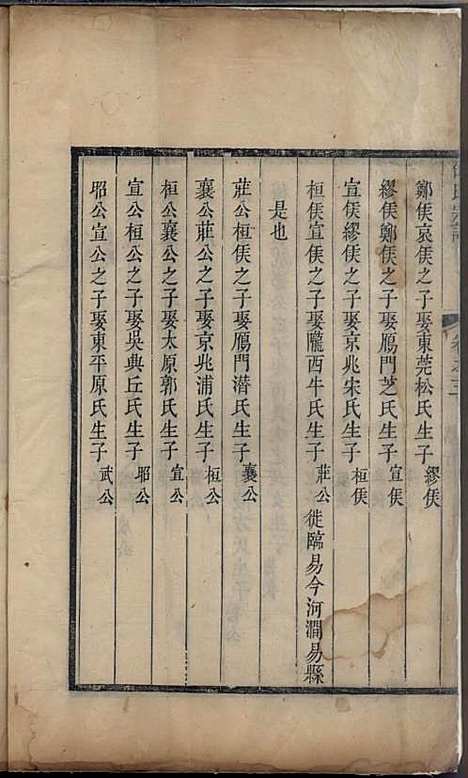 鄭矦哀矦之子娶東莞松氏生子繆矦
繆矦鄭矦之子娶鴈門芝氏生子宣矦
宣矦繆矦之子娶京兆宋氏生子桓矦
桓矦宣矦之子娶隴西牛氏生子莊公徙臨易今河澗易縣
是也
莊公桓矦之子娶鴈門潛氏生子襄公
襄公莊公之子娶京兆浦氏生子桓公
桓公襄公之子娶太原郭氏生子宣公
宣公桓公之子娶吳典丘氏生子昭公
昭公宣公之子娶東平原氏生子武公